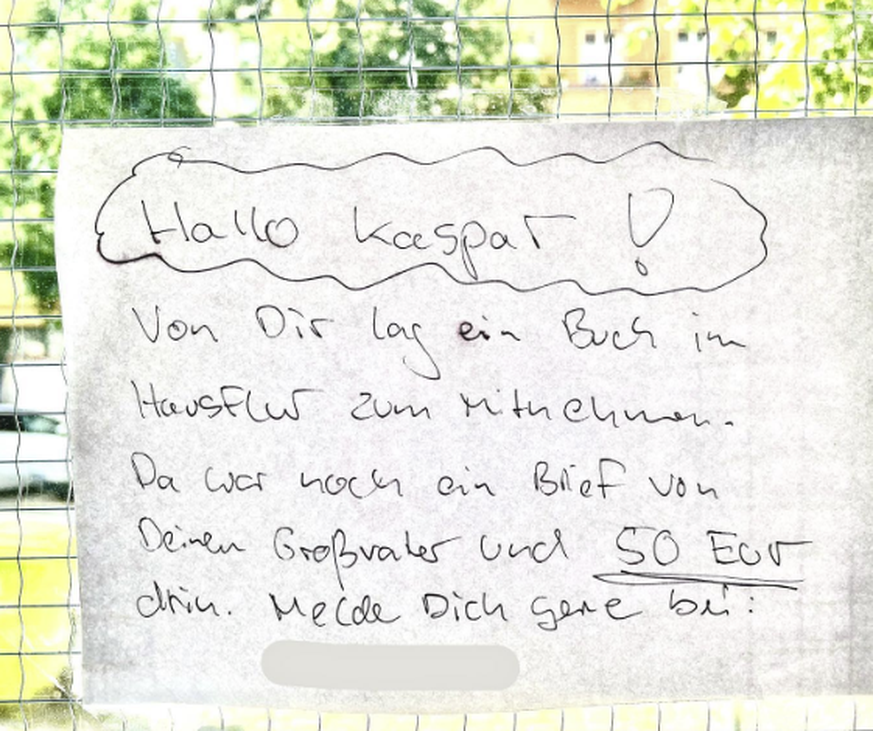 Hallo Kaspar!
Von Dir lag ein Buch im
Hausflur zum Mitnehmen.
Da war noch ein Brief von
Deinen Großvater und 50 Eur
drin. Melde Dich gerne bei: